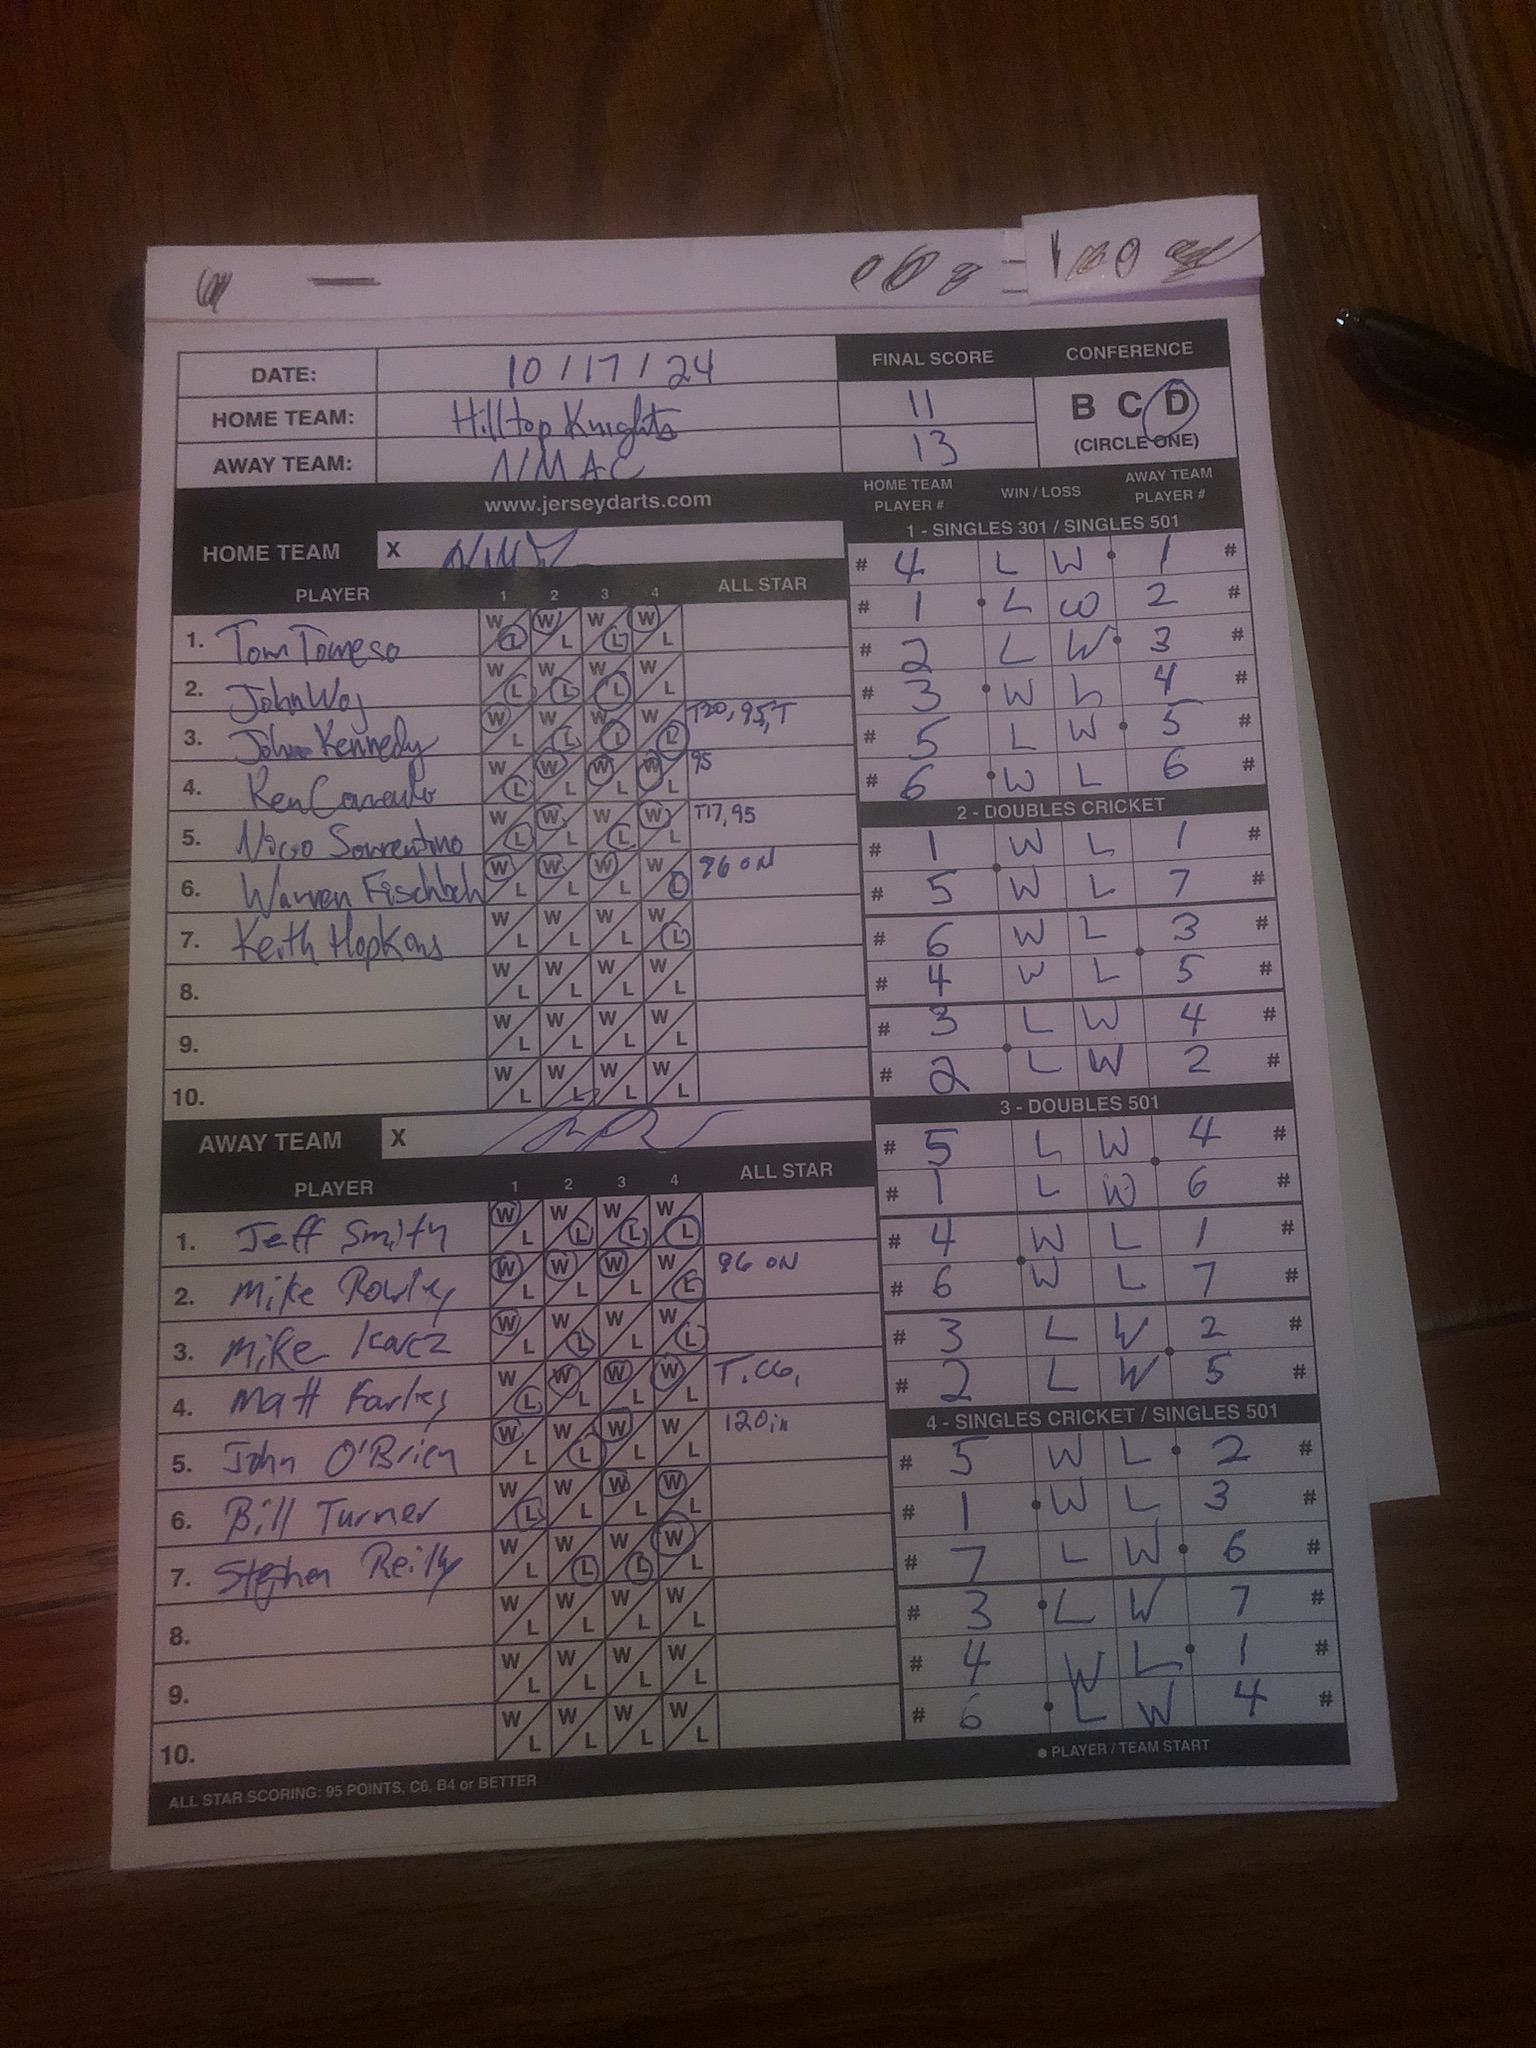 DATE: 10/17/24
HOME TEAM: Hilltop Knights
AWAY TEAM: NMAC
FINAL SCORE
11
13
CONFERENCE
B C D
(CIRCLE ONE)
www.jerseydarts.com
HOME TEAM X
PLAYER 1 2 3 4 ALL STAR
1. Tom Tomeso W L W L W L W L
2. John Woj W L W L W L W L
3. John Kennedy W L W L W L W L T20, 95, T
4. Ken W L W L W L W L 95
5. Nico Sorrentino W L W L W L W L T17, 95
6. Warren Fischbch W L W L W L W L 96 ON
7. Keith Hopkins W L W L W L W L
8. W L W L W L W L
9. W L W L W L W L
10. W L W L W L W L
AWAY TEAM X
PLAYER 1 2 3 4 ALL STAR
1. Jeff Smith W L W L W L W L
2. Mike Rowley W L W L W L W L 96 ON
3. Mike Karcz W L W L W L W L
4. Matt Farley W L W L W L W L T. C6,
5. John O'Brien W L W L W L W L 120 in
6. Bill Turner W L W L W L W L
7. Stephen Reilly W L W L W L W L
8. W L W L W L W L
9. W L W L W L W L
10. W L W L W L W L
ALL STAR SCORING: 95 POINTS, C6, B4 or BETTER
HOME TEAM PLAYER # WIN / LOSS AWAY TEAM PLAYER #
1 - SINGLES 301 / SINGLES 501
# 4 L W 1 #
# 1 L W 2 #
# 2 L W 3 #
# 3 W L 4 #
# 5 L W 5 #
# 6 W L 6 #
2 - DOUBLES CRICKET
# 1 W L 1 #
# 5 W L 7 #
# 6 W L 3 #
# 4 W L 5 #
# 3 L W 4 #
# 2 L W 2 #
3 - DOUBLES 501
# 5 L W 4 #
# 1 L W 6 #
# 4 W L 1 #
# 6 W L 7 #
# 3 L W 2 #
# 2 L W 5 #
4 - SINGLES CRICKET / SINGLES 501
# 5 W L 2 #
# 1 W L 3 #
# 7 L W 6 #
# 3 L W 7 #
# 4 W L 1 #
# 6 L W 4 #
● PLAYER / TEAM START